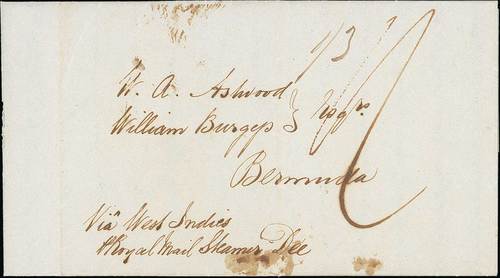 1/3
W. A. Ashwood
William Burgess } Esqrs
Bermuda
Via West Indies
Pr Royal Mail Steamer Dee